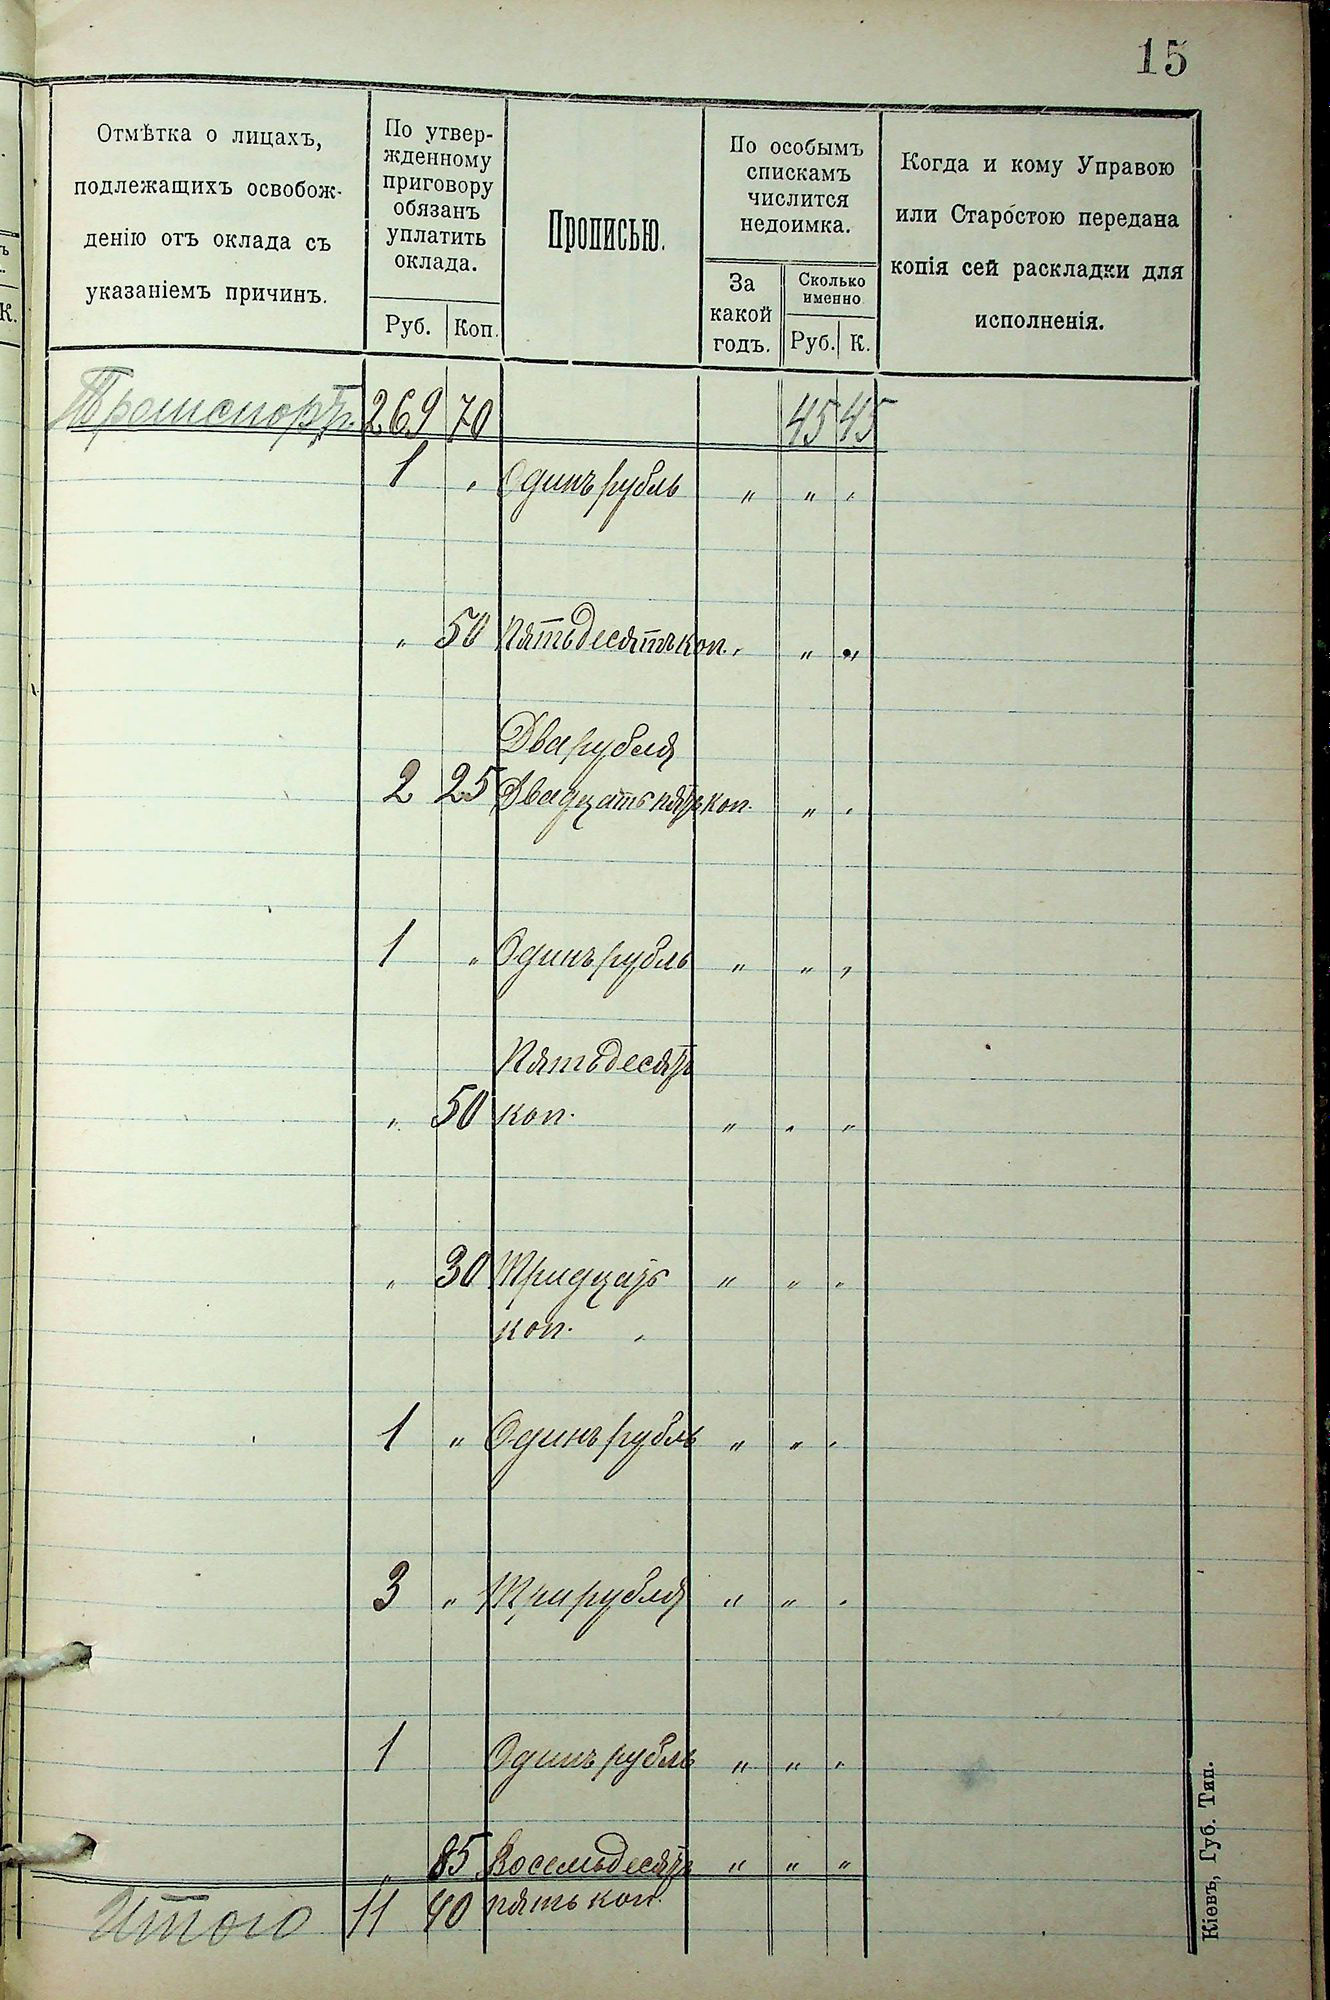 15
Отмѣтка о лицахъ,
подлежащихъ освобож-
денію отъ оклада съ
указаніемъ причинъ.
По утвер-
жденному
приговору
обязанъ
уплатить
оклада.
Руб. Коп.
Прописью.
По особымъ
спискамъ
числится
недоимка.
За
какой
годъ.
Сколько
именно
Руб. К.
Когда и кому Управою
или Старостою передана
копія сей раскладки для
исполненія.
К.
Транспортъ. 269 70 45 45
1 „ Одинъ рубль „ „ „
„ 50 Пятьдесятъ коп. „ „ „
Два рубля
2 25 Двадцать пять коп. „ „
1 „ Одинъ рубль „ „ „
Пятьдесятъ
„ 50 коп. „ „ „
„ 30 Тридцать „ „ „
коп.
1 „ Одинъ рубль „ „ „
3 „ Три рубля „ „ „
1 Одинъ рубль „ „ „
„ 85 Восемьдесятъ „ „ „
Итого 11 40 пять коп.
Кіевъ, Губ. Тип.